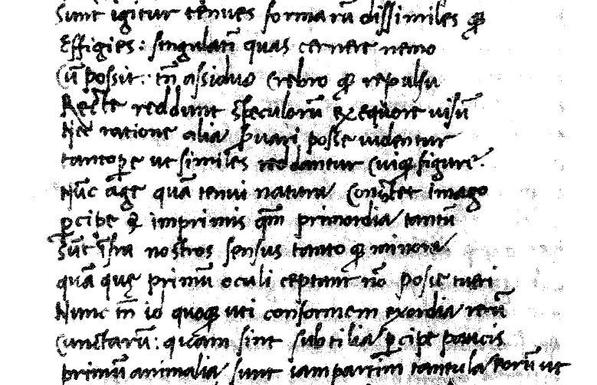 Sunt igitur tenues formarū dissimiles qꝫ
Effigies: singulatī quas cernere nemo
Cū possit: tn̄ assiduo crebro qꝫ repulsu
Recte reddunt speculorū ex equore visū
Nec ratione alia ẜuari posse uidentur
tantoꝑe ut similes reddantur cuiqꝫ figure.
Nūc age quā tenui natura constet imago
ꝑcipe & imprimis qm̄ primordia tantū
Sūt īfra nostros sensus tanto qꝫ minora
quā quę primū oculi ceptant nō posse tueri
Nunc tn̄ io quoqꝫ uti conformem exordia rerū
Cunctarū: quam sint subtilia ꝑcipe paucis
primū animalia sunt iampartim tantula eorum ut